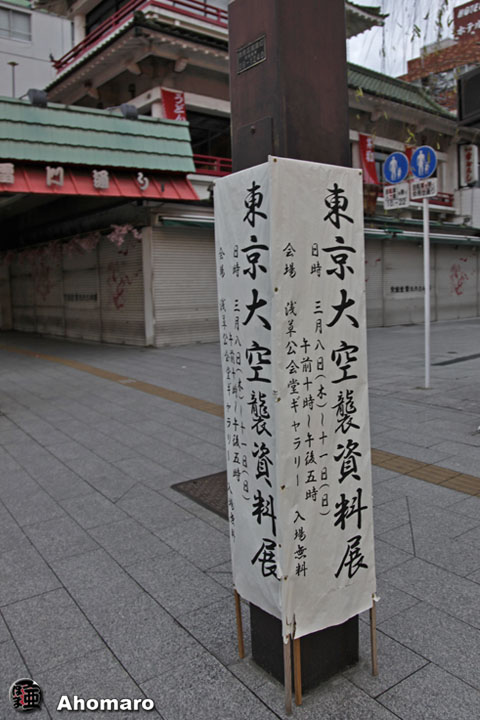 東京大空襲資料展
日時 三月八日(木)〜十一日(日)
午前十時〜午後五時
会場 浅草公会堂ギャラリー 入場無料
東京大空襲資料展
日時 三月八日(木)〜十一日(日)
午前十時〜午後五時
会場 浅草公会堂ギャラリー 入場無料
うどん
Ahomaro